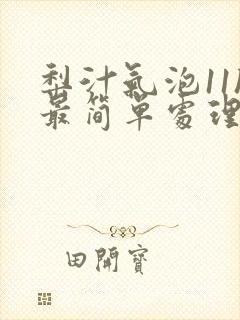 梨汁氣泡11
最简單處理
田開寶